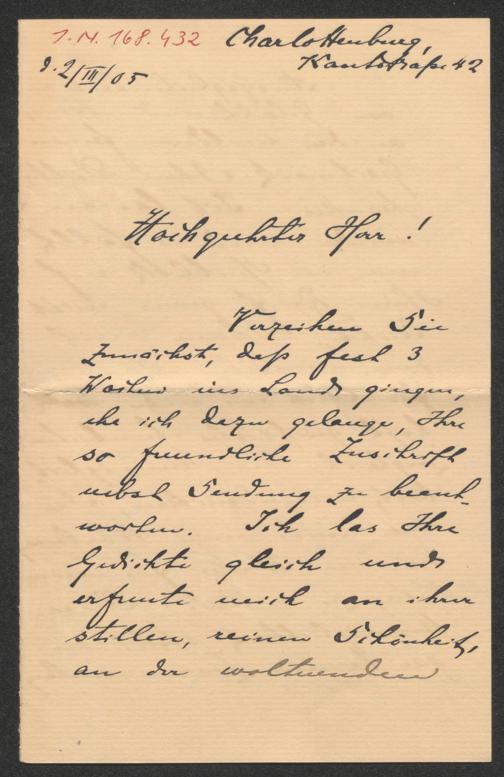 I.N. 168.432
Charlottenburg,
Kantstraße 42
d. 2/III/05
Hochgeehrter Herr!
Verzeihen Sie
zunächst, daß fast 3
Wochen ins Land gingen,
ehe ich dazu gelange, Ihre
so freundliche Zuschrift
nebst Sendung zu beant-
worten. Ich las Ihre
Gedichte gleich und
erfreute mich an ihrer
stillen, reinen Schönheit,
an der woltuenden